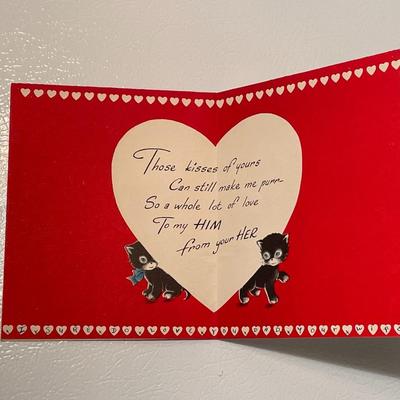 Those kisses of yours
Can still make me purr-
So a whole lot of love
To my HIM
from your HER